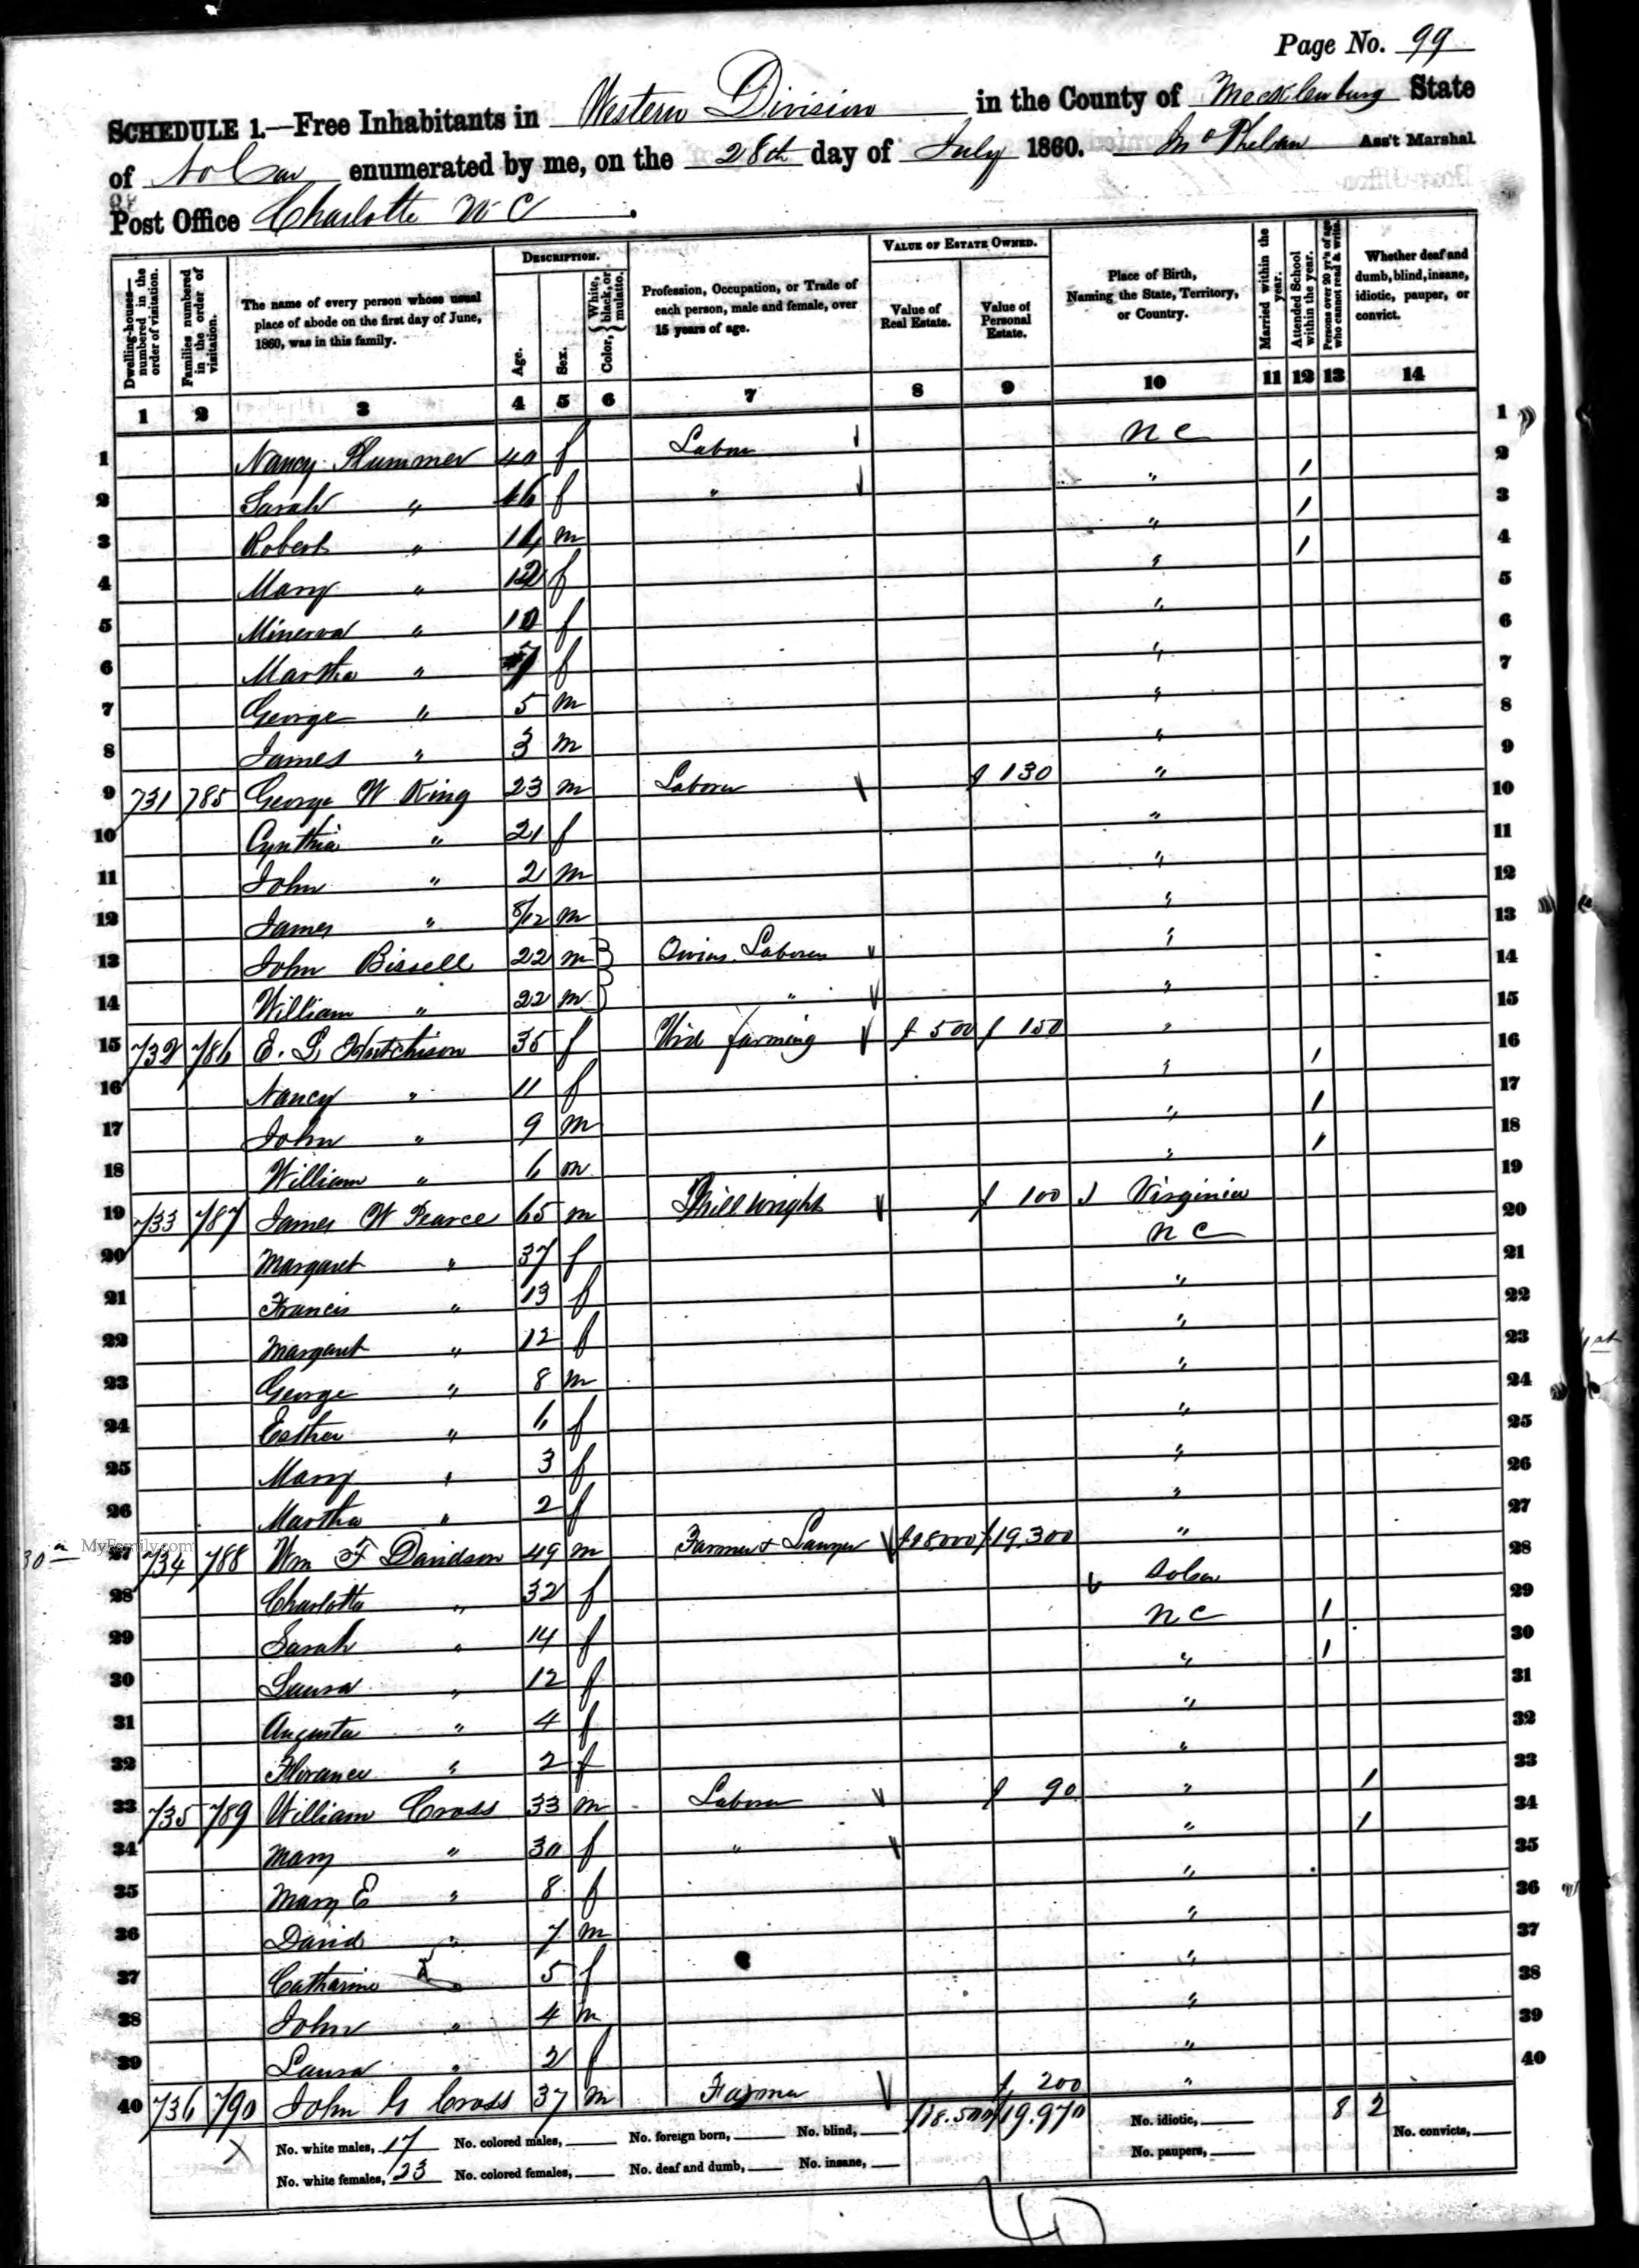 Page No. 99
SCHEDULE 1.—Free Inhabitants in Western Division in the County of Mecklenburg State
of No Car enumerated by me, on the 28th day of July 1860. Ass't Marshal
Post Office Charlotte N C.
DESCRIPTION. VALUE OF ESTATE OWNED.
Dwelling-houses—numbered in the order of visitation. Families numbered in the order of visitation. The name of every person whose usual place of abode on the first day of June, 1860, was in this family. Age. Sex. Color, { White, black, or mulatto. Profession, Occupation, or Trade of each person, male and female, over 15 years of age. Value of Real Estate. Value of Personal Estate. Place of Birth, Naming the State, Territory, or Country. Married within the year. Attended School within the year. Persons over 20 yr's of age who cannot read & write. Whether deaf and dumb, blind, insane, idiotic, pauper, or convict.
1 2 3 4 5 6 7 8 9 10 11 12 13 14
1 Nancy Plummer 40 f N C 1
2 Sarah " 16 f " " 1 2
3 Robert " 14 m " 1 3
4 Mary " 12 f " 1 4
5 Minerva " 10 f " 5
6 Martha " 7 f " 6
7 George " 5 m " 7
8 James " 3 m " 8
9 731 785 George W King 23 m Laborer $ 130 " 9
10 Cynthia " 21 f " 10
11 John " 2 m " 11
12 James " 8/12 m " 12
13 John Bissell 22 m } Laborer " 13
14 William " 22 m } " " 14
15 732 786 E. L Hutchison 35 f Wid farming $ 500 $ 150 " 15
16 Nancy " 11 f " 1 16
17 John " 9 m " 1 17
18 William " 6 m " 1 18
19 733 787 James W Pearce 65 m Millwright $ 100 Virginia 19
20 Margaret " 37 f N C 20
21 Francis " 13 f " 21
22 Margaret " 12 f " 22
23 George " 8 m " 23
24 Esther " 6 f " 24
25 Mary " 3 f " 25
26 Martha " 2 f " 26
27 734 788 Wm F Davidson 49 m Farmer & Lawyer $ 19,300 " 27
28 Charlotte " 32 f So Ca 28
29 Sarah " 14 f N C 1 29
30 Laura " 12 f " 1 30
31 Augusta " 4 f " 31
32 Florance " 2 f " 32
33 735 789 William Cross 33 m Laborer $ 90 " 1 33
34 Mary " 30 f " " 1 34
35 Mary E " 8 f " 35
36 David " 7 m " 36
37 Catharine " 5 f " 37
38 John " 4 m " 38
39 Laura " 2 f " 39
40 736 790 John G Cross 37 m Farmer $ 200 " 40
No. white males, 17 No. colored males, No. foreign born, No. blind, $18.500 $19.970 No. idiotic, 8 2 No. convicts,
No. white females, 23 No. colored females, No. deaf and dumb, No. insane, No. paupers,
40
MyFamily.com